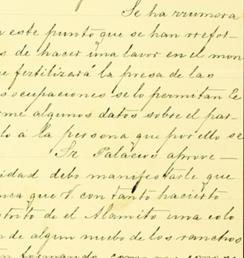 Se ha rrumora
este punto que se han rrefor
s de hacer una lavor en el mon
e fertilizará la presa de las
s ocupaciones se lo permitan Ee
rme algunos datos sobre el par
lo a la persona que por ello se
Sr Palacios aprove-
idad debo manifestarle que
nca que V. con tanto hacierto
strito de el Alamito una colo
de algun nuebo de los ranchos